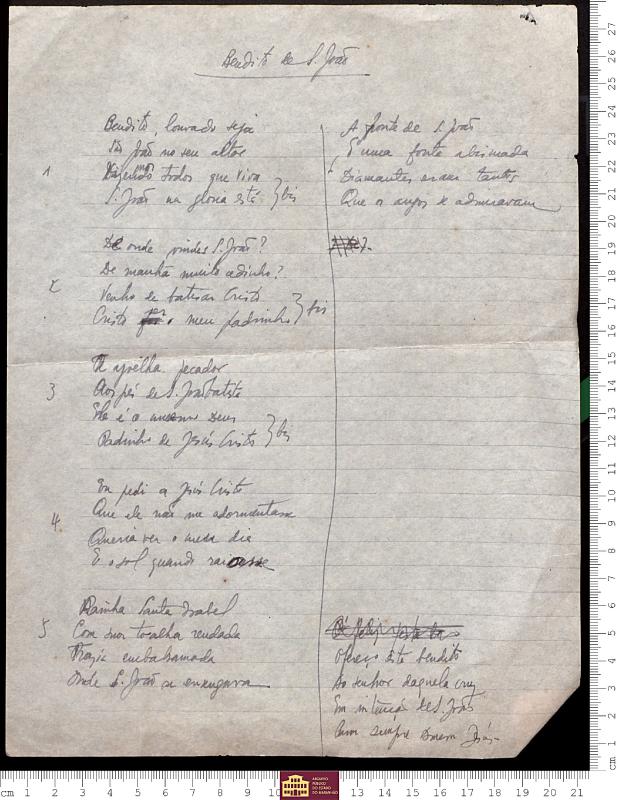 Bendito de S. João
Bendito, louvado seja
São João no seu altar
1
Dizendo todos que viva
S. João na gloria está } bis
De onde vindes S. João?
De manhã muito cedinho?
2
Venho de batisar Cristo
Cristo é o meu padrinho } bis
Te ajoelha pecador
3
Aos pés de S. João batista
Ele é o mesmo Deus
Padinho de Jesús Cristo } bis
Eu pedi a Jesús Cristo
Que ele não me adormentasse
4
Queria ver o meio dia
E o sol quando raiasse
Rainha Santa Isabel
5
Com sua toalha rendada
Trazia embalsamada
Onde S. João se enxugava
A fonte de S. João
É uma fonte abismada
Diamantes eram tantos
Que os anjos se admiravam
Ofereço este bendito
Ao senhor daquela cruz
Em intenção de S. João
Para sempre Amem Jesús.
cm 1 2 3 4 5 6 7 8 9 10
ARQUIVO PÚBLICO DO ESTADO DO MARANHÃO
12 13 14 15 16 17 18 19 20 21